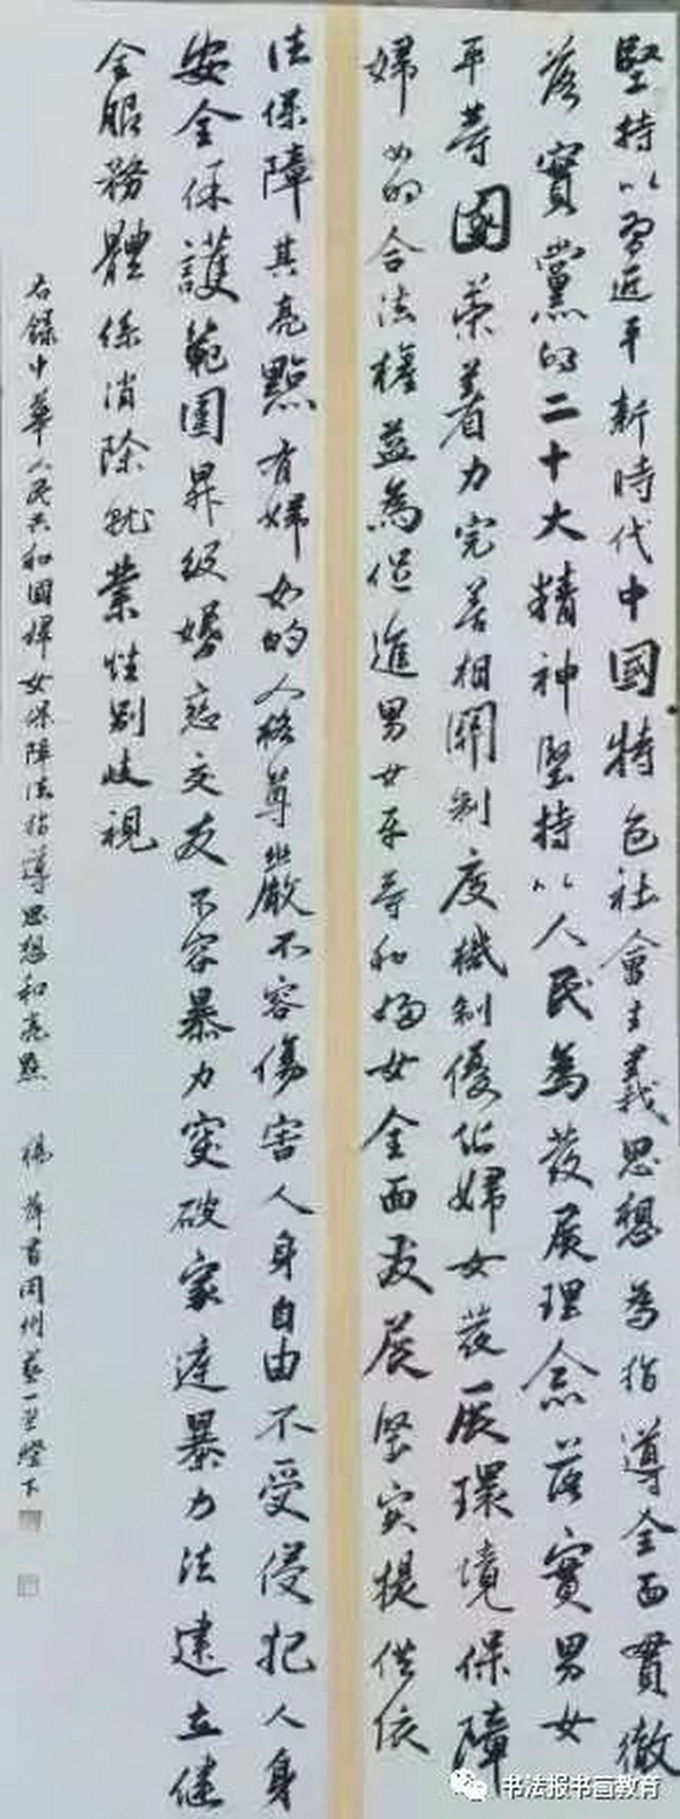 堅持以習近平新時代中國特色社會主義思想為指導全面貫徹
落實黨的二十大精神堅持以人民為發展理念落實男女
平等國策着力完善相關制度機制優化婦女發展環境保障
婦女的合法權益為促進男女平等和婦女全面發展堅实提供依
法保障其亮點有婦女的人格尊嚴不容傷害人身自由不受侵犯人身
安全保護範圍昇級婚恋交友不容暴力突破家庭暴力法建立健
全服務體係消除就業性别歧視
右錄中華人民共和國婦女保障法指導思想和亮點 楊 書同州藝一堂燈下
书法报书画教育